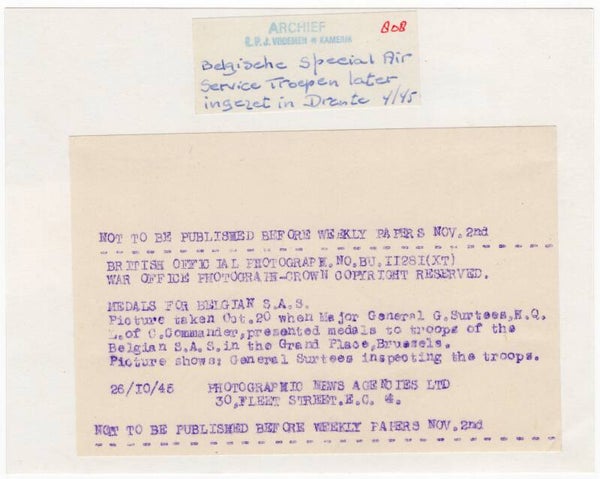 ARCHIEF
808
Belgische Special Air
Service Troepen later
ingezet in Drente 4/45
NOT TO BE PUBLISHED BEFORE WEEKLY PAPERS NOV. 2nd
BRITISH OFFICIAL PHOTOGRAPH.NO.BU.II28I(XT)
WAR OFFICE PHOTOGRAPH-CROWN COPYRIGHT RESERVED.
MEDALS FOR BELGIAN S.A.S.
Picture taken Oct.20 when Major General G.Surtees,H.Q.
L.of C.Commander,presented medals to troops of the
Belgian S.A.S.in the Grand Place,Brussels.
Picture shows: General Surtees inspecting the troops.
26/IO/45 PHOTOGRAPHIC NEWS AGENCIES LTD
30,FLEET STREET.E.C. 4.
NOT TO BE PUBLISHED BEFORE WEEKLY PAPERS NOV. 2nd